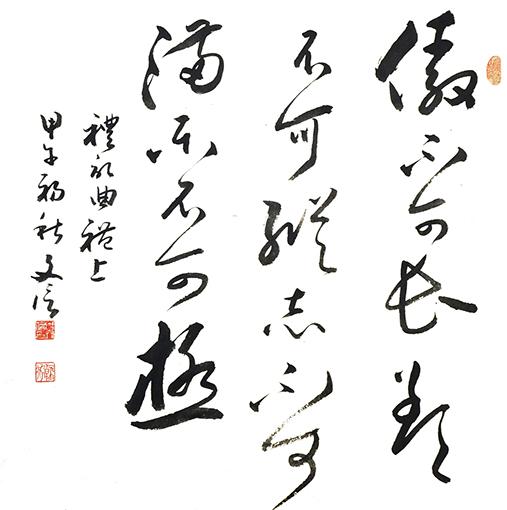 傲不可长欲
不可纵志不可
满乐不可极
禮記曲禮上
甲午初秋文信